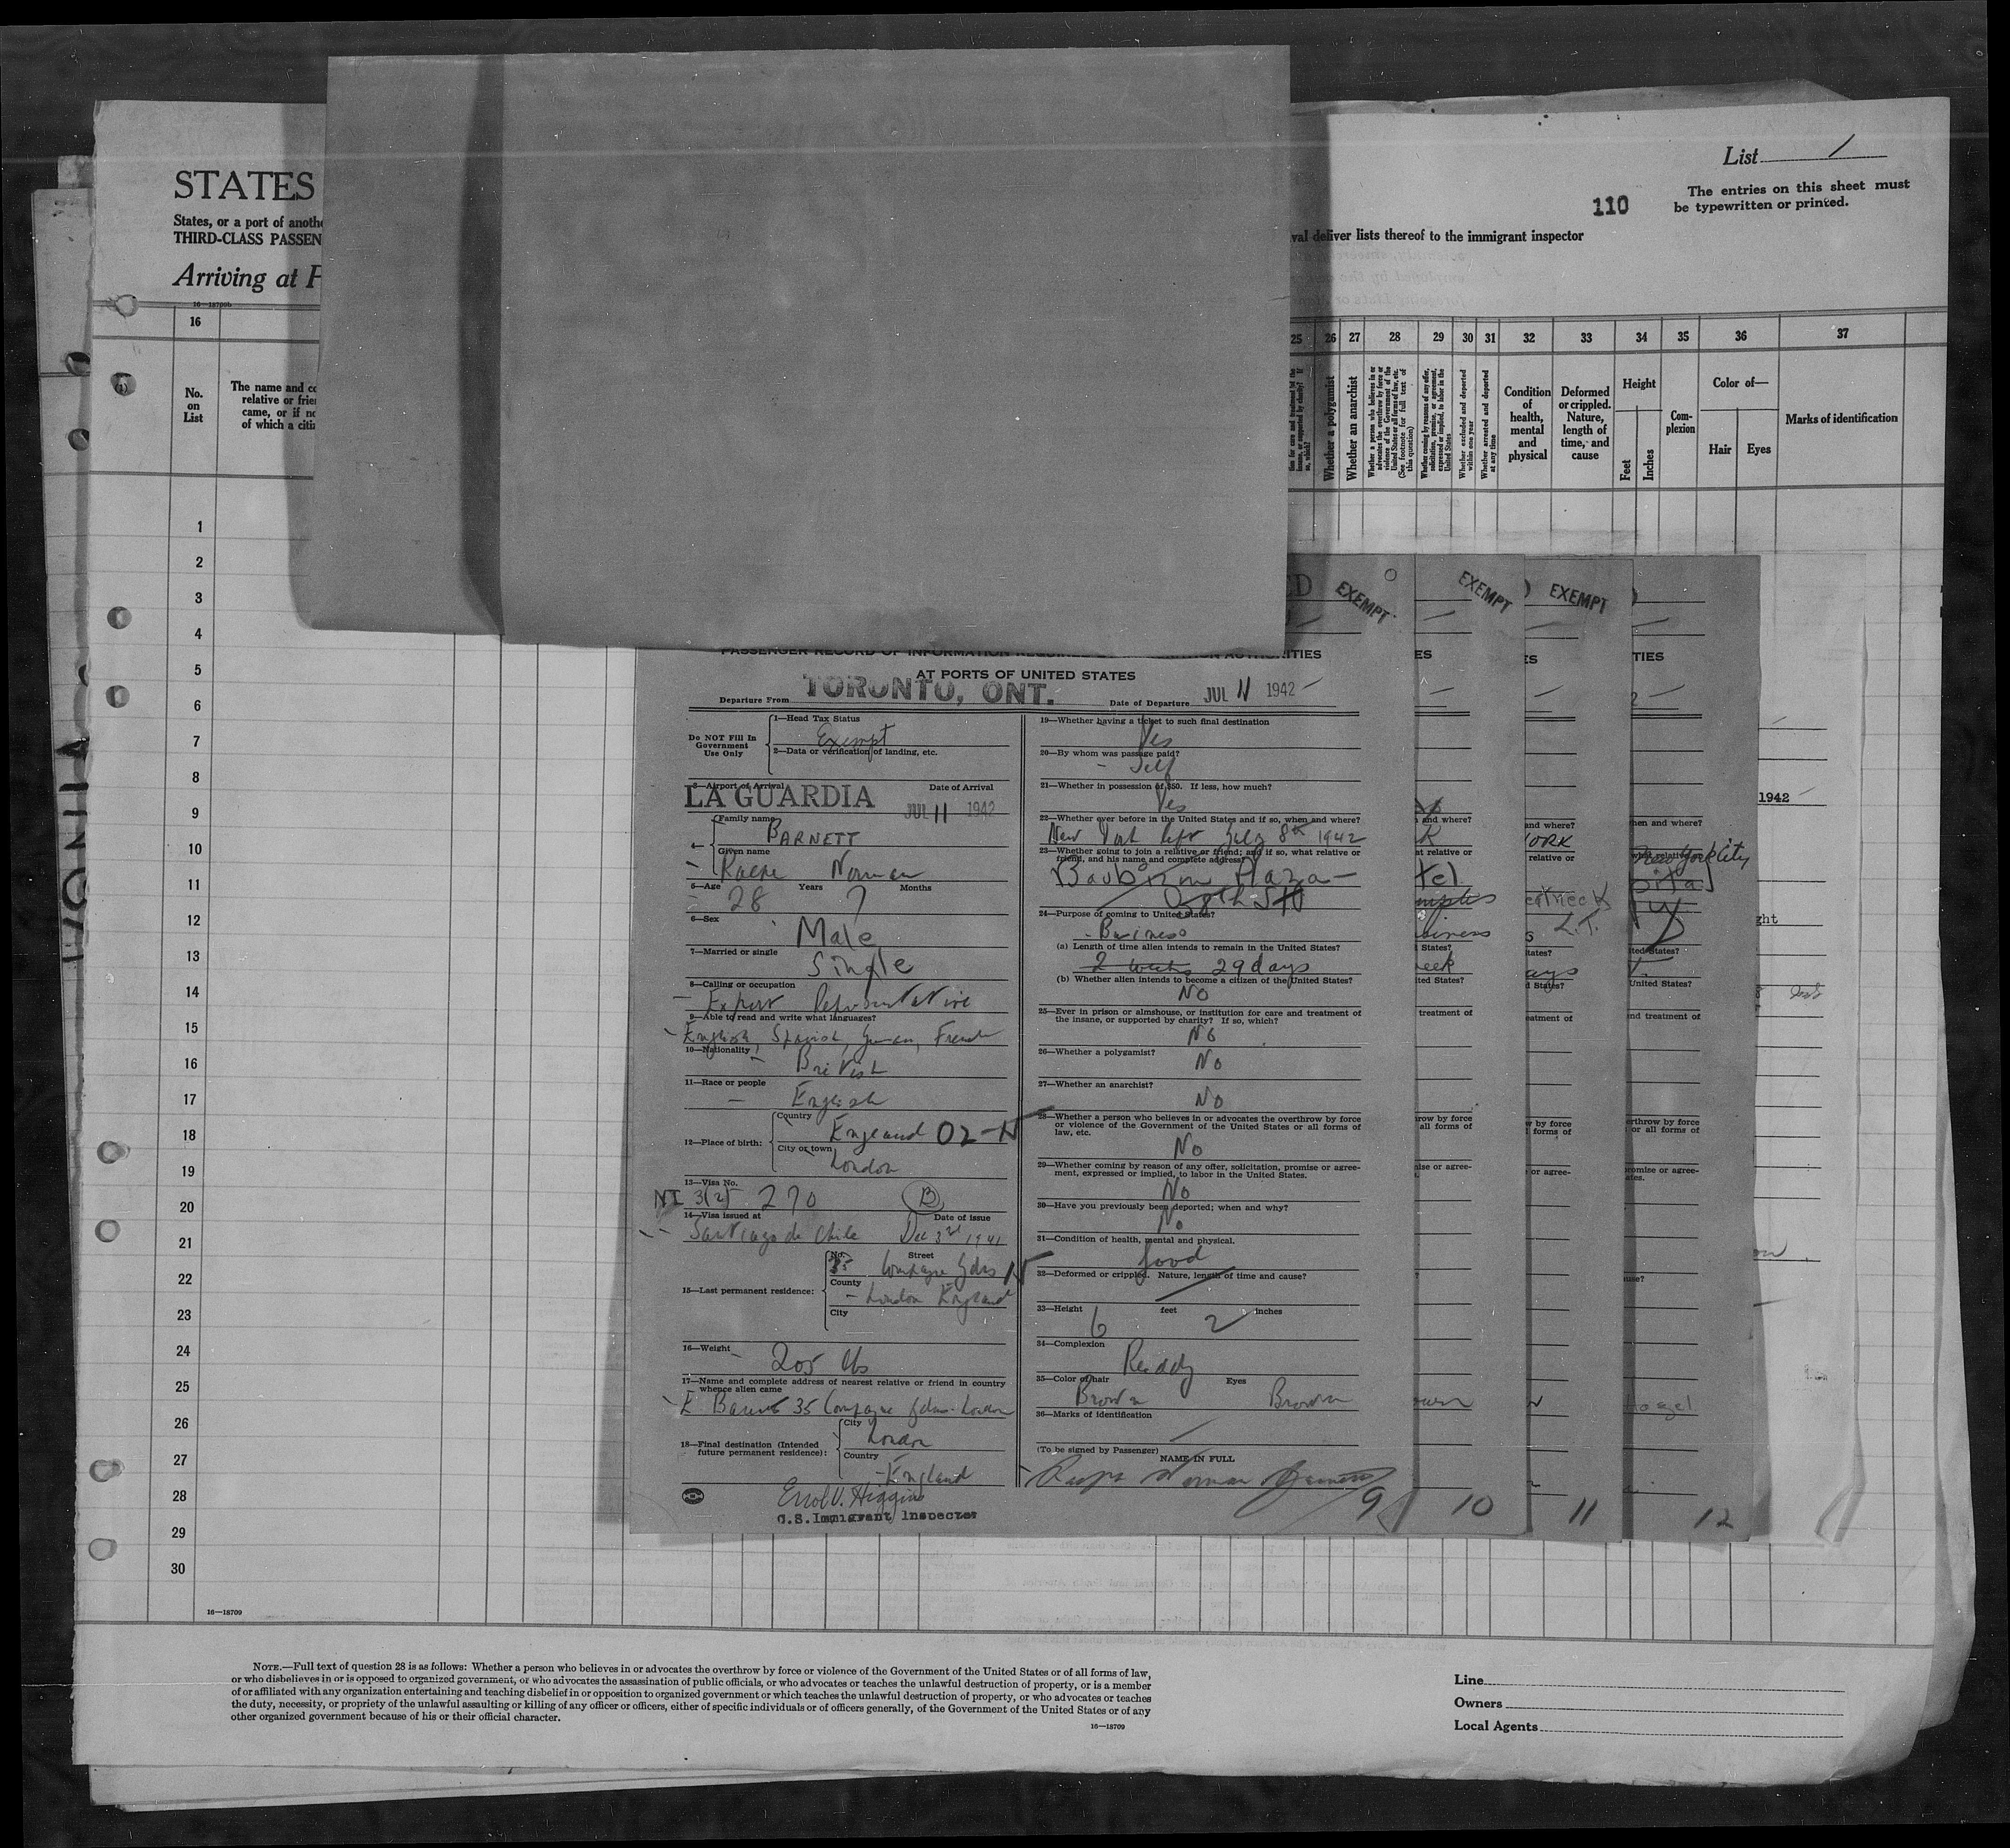 STATES
States, or a port of anoth
THIRD-CLASS PASSEN
Arriving at P
16—18709b
List 1
The entries on this sheet must
be typewritten or printed.
110
val deliver lists thereof to the immigrant inspector
16
No.
on
List
The name and co
relative or frie
came, or if no
of which a citi
25
26
27
28
29
30
31
32
33
34
35
36
37
Whether a polygamist
Whether an anarchist
Whether a person who believes in or
advocates the overthrow by force or
violence of the Government of the
United States or all forms of law, etc.
(See footnote for full text of
this question)
Whether coming by reason of any offer,
solicitation, promise, or agreement,
expressed or implied, to labor in the
United States
Whether excluded and deported
within one year
Whether arrested and deported
at any time
Condition
of
health,
mental
and
physical
Deformed
or crippled.
Nature,
length of
time, and
cause
Height
Feet
Inches
Com-
plexion
Color of—
Hair
Eyes
Marks of identification
1
2
3
4
5
6
7
8
9
10
11
12
13
14
15
16
17
18
19
20
21
22
23
24
25
26
27
28
29
30
16—18709
EXEMPT
EXEMPT
EXEMPT
AT PORTS OF UNITED STATES
Departure From TORONTO, ONT. Date of Departure JUL 11 1942
Do NOT Fill In
Government
Use Only
1—Head Tax Status
Exempt
2—Data or verification of landing, etc.
3—Airport of Arrival Date of Arrival
LA GUARDIA JUL 11 1942
4—
Family name
BARNETT
Given name
Ralph Norman
5—Age Years Months
28 7
6—Sex
Male
7—Married or single
Single
8—Calling or occupation
Export Representative
9—Able to read and write what languages?
English, Spanish, German, French
10—Nationality
British
11—Race or people
English
12—Place of birth:
Country
England 02-N
City or town
London
13—Visa No.
NI 3(2) 270 B
14—Visa issued at Date of issue
Santiago de Chile Dec 3rd 1941
15—Last permanent residence:
No. Street
35 Compayne Gdns
County
London England
City
16—Weight
205 lbs
17—Name and complete address of nearest relative or friend in country
whence alien came
35 Compayne Gdns. London
18—Final destination (Intended
future permanent residence):
City
London
Country
England
Errol V. Higgins
U.S. Immigrant Inspector
19—Whether having a ticket to such final destination
Yes
20—By whom was passage paid?
Self
21—Whether in possession of $50. If less, how much?
Yes
22—Whether ever before in the United States and if so, when and where?
New York left July 8th 1942
23—Whether going to join a relative or friend; and if so, what relative or
friend, and his name and complete address?
Plaza
58th St
24—Purpose of coming to United States?
Business
(a) Length of time alien intends to remain in the United States?
2 weeks 29 days
(b) Whether alien intends to become a citizen of the United States?
No
25—Ever in prison or almshouse, or institution for care and treatment of
the insane, or supported by charity? If so, which?
No
26—Whether a polygamist?
No
27—Whether an anarchist?
No
28—Whether a person who believes in or advocates the overthrow by force
or violence of the Government of the United States or all forms of
law, etc.
No
29—Whether coming by reason of any offer, solicitation, promise or agree-
ment, expressed or implied, to labor in the United States.
No
30—Have you previously been deported; when and why?
No
31—Condition of health, mental and physical.
Good
32—Deformed or crippled. Nature, length of time and cause?
33—Height feet inches
6 2
34—Complexion
Ruddy
35—Color of hair Eyes
Brown Brown
36—Marks of identification
(To be signed by Passenger) NAME IN FULL
Ralph Norman Barnett
9
10
11
12
1942
New York City
Hazel
NOTE.—Full text of question 28 is as follows: Whether a person who believes in or advocates the overthrow by force or violence of the Government of the United States or of all forms of law,
or who disbelieves in or is opposed to organized government, or who advocates the assassination of public officials, or who advocates or teaches the unlawful destruction of property, or is a member
of or affiliated with any organization entertaining and teaching disbelief in or opposition to organized government or which teaches the unlawful destruction of property, or who advocates or teaches
the duty, necessity, or propriety of the unlawful assaulting or killing of any officer or officers, either of specific individuals or of officers generally, of the Government of the United States or of any
other organized government because of his or their official character.
16—18709
Line
Owners
Local Agents